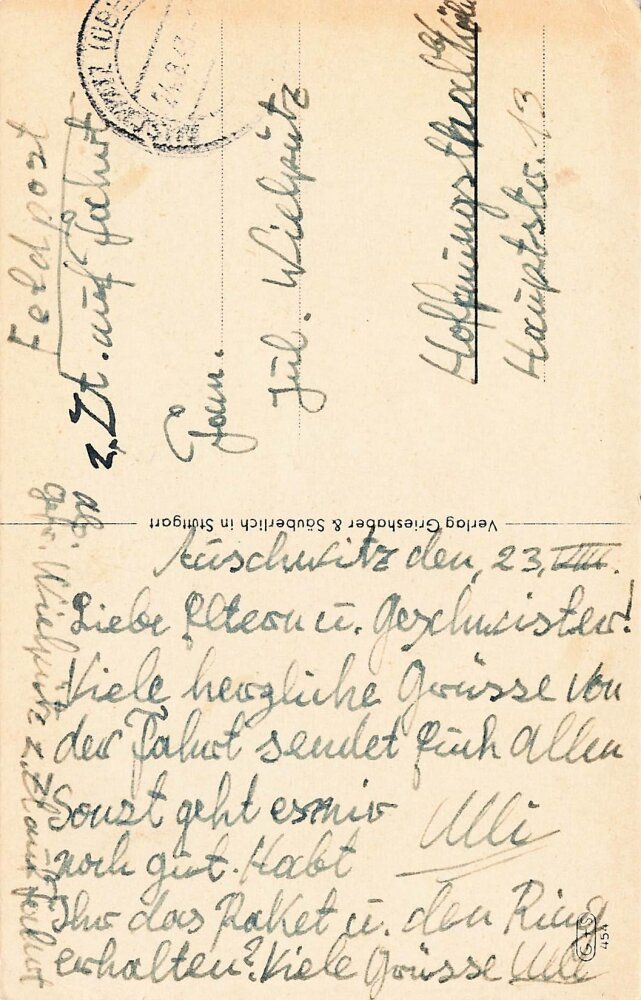 Feldpost
z. Zt. auf Fahrt
Fam.
Jul. Wielpütz
Hoffnungsthal
Hauptstr. 13
AUSCHWITZ
24.8.4
Verlag Grieshaber & Säuberlich in Stuttgart
Abs:
Gefr. Wielpütz z. Zt. auf Fahrt
Auschwitz den, 23. VIII.
Liebe Eltern u. Geschwister!
Viele herzliche Grüsse von
der Fahrt sendet Euch allen
Ulli
Sonst geht es mir
noch gut. Habt
Ihr das Paket u. den Ring
erhalten? Viele Grüsse Ulli
G+S
454